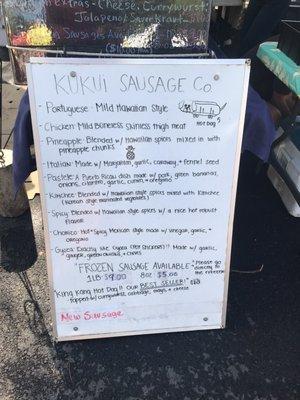 Extras - Cheese, Currywurst,
Jalapeño, Sauerkraut
KUKUI SAUSAGE CO.
• Portuguese: Mild Hawaiian Style
HOT DOG
• Chicken: Mild Boneless skinless thigh meat
• Pineapple: Blended w/ Hawaiian spices mixed in with
pineapple chunks
• Italian: Made w/ Marjoram, garlic, caraway + fennel seed
• Pastele: A Puerto Rican dish made w/ pork, green bananas,
onions, cilantro, garlic, cumin, & oregano
• Kimchee: Blended w/ Hawaiian spices mixed with Kimchee
(Korean style marinated vegetables)
• Spicy: Blended w/ Hawaiian style spices w/ a nice hot robust
flavor
• Chorizo: Hot & Spicy Mexican style made w/ vinegar, garlic, +
oregano
Made w/ garlic,
ginger, green onions, & chives
*FROZEN SAUSAGE AVAILABLE
1LB $9.00 8oz $5.00
"Kang Kang Hot Dog"!! Our BEST SELLER!
topped w/ cabbage, mayo, & cheese
New Sausage